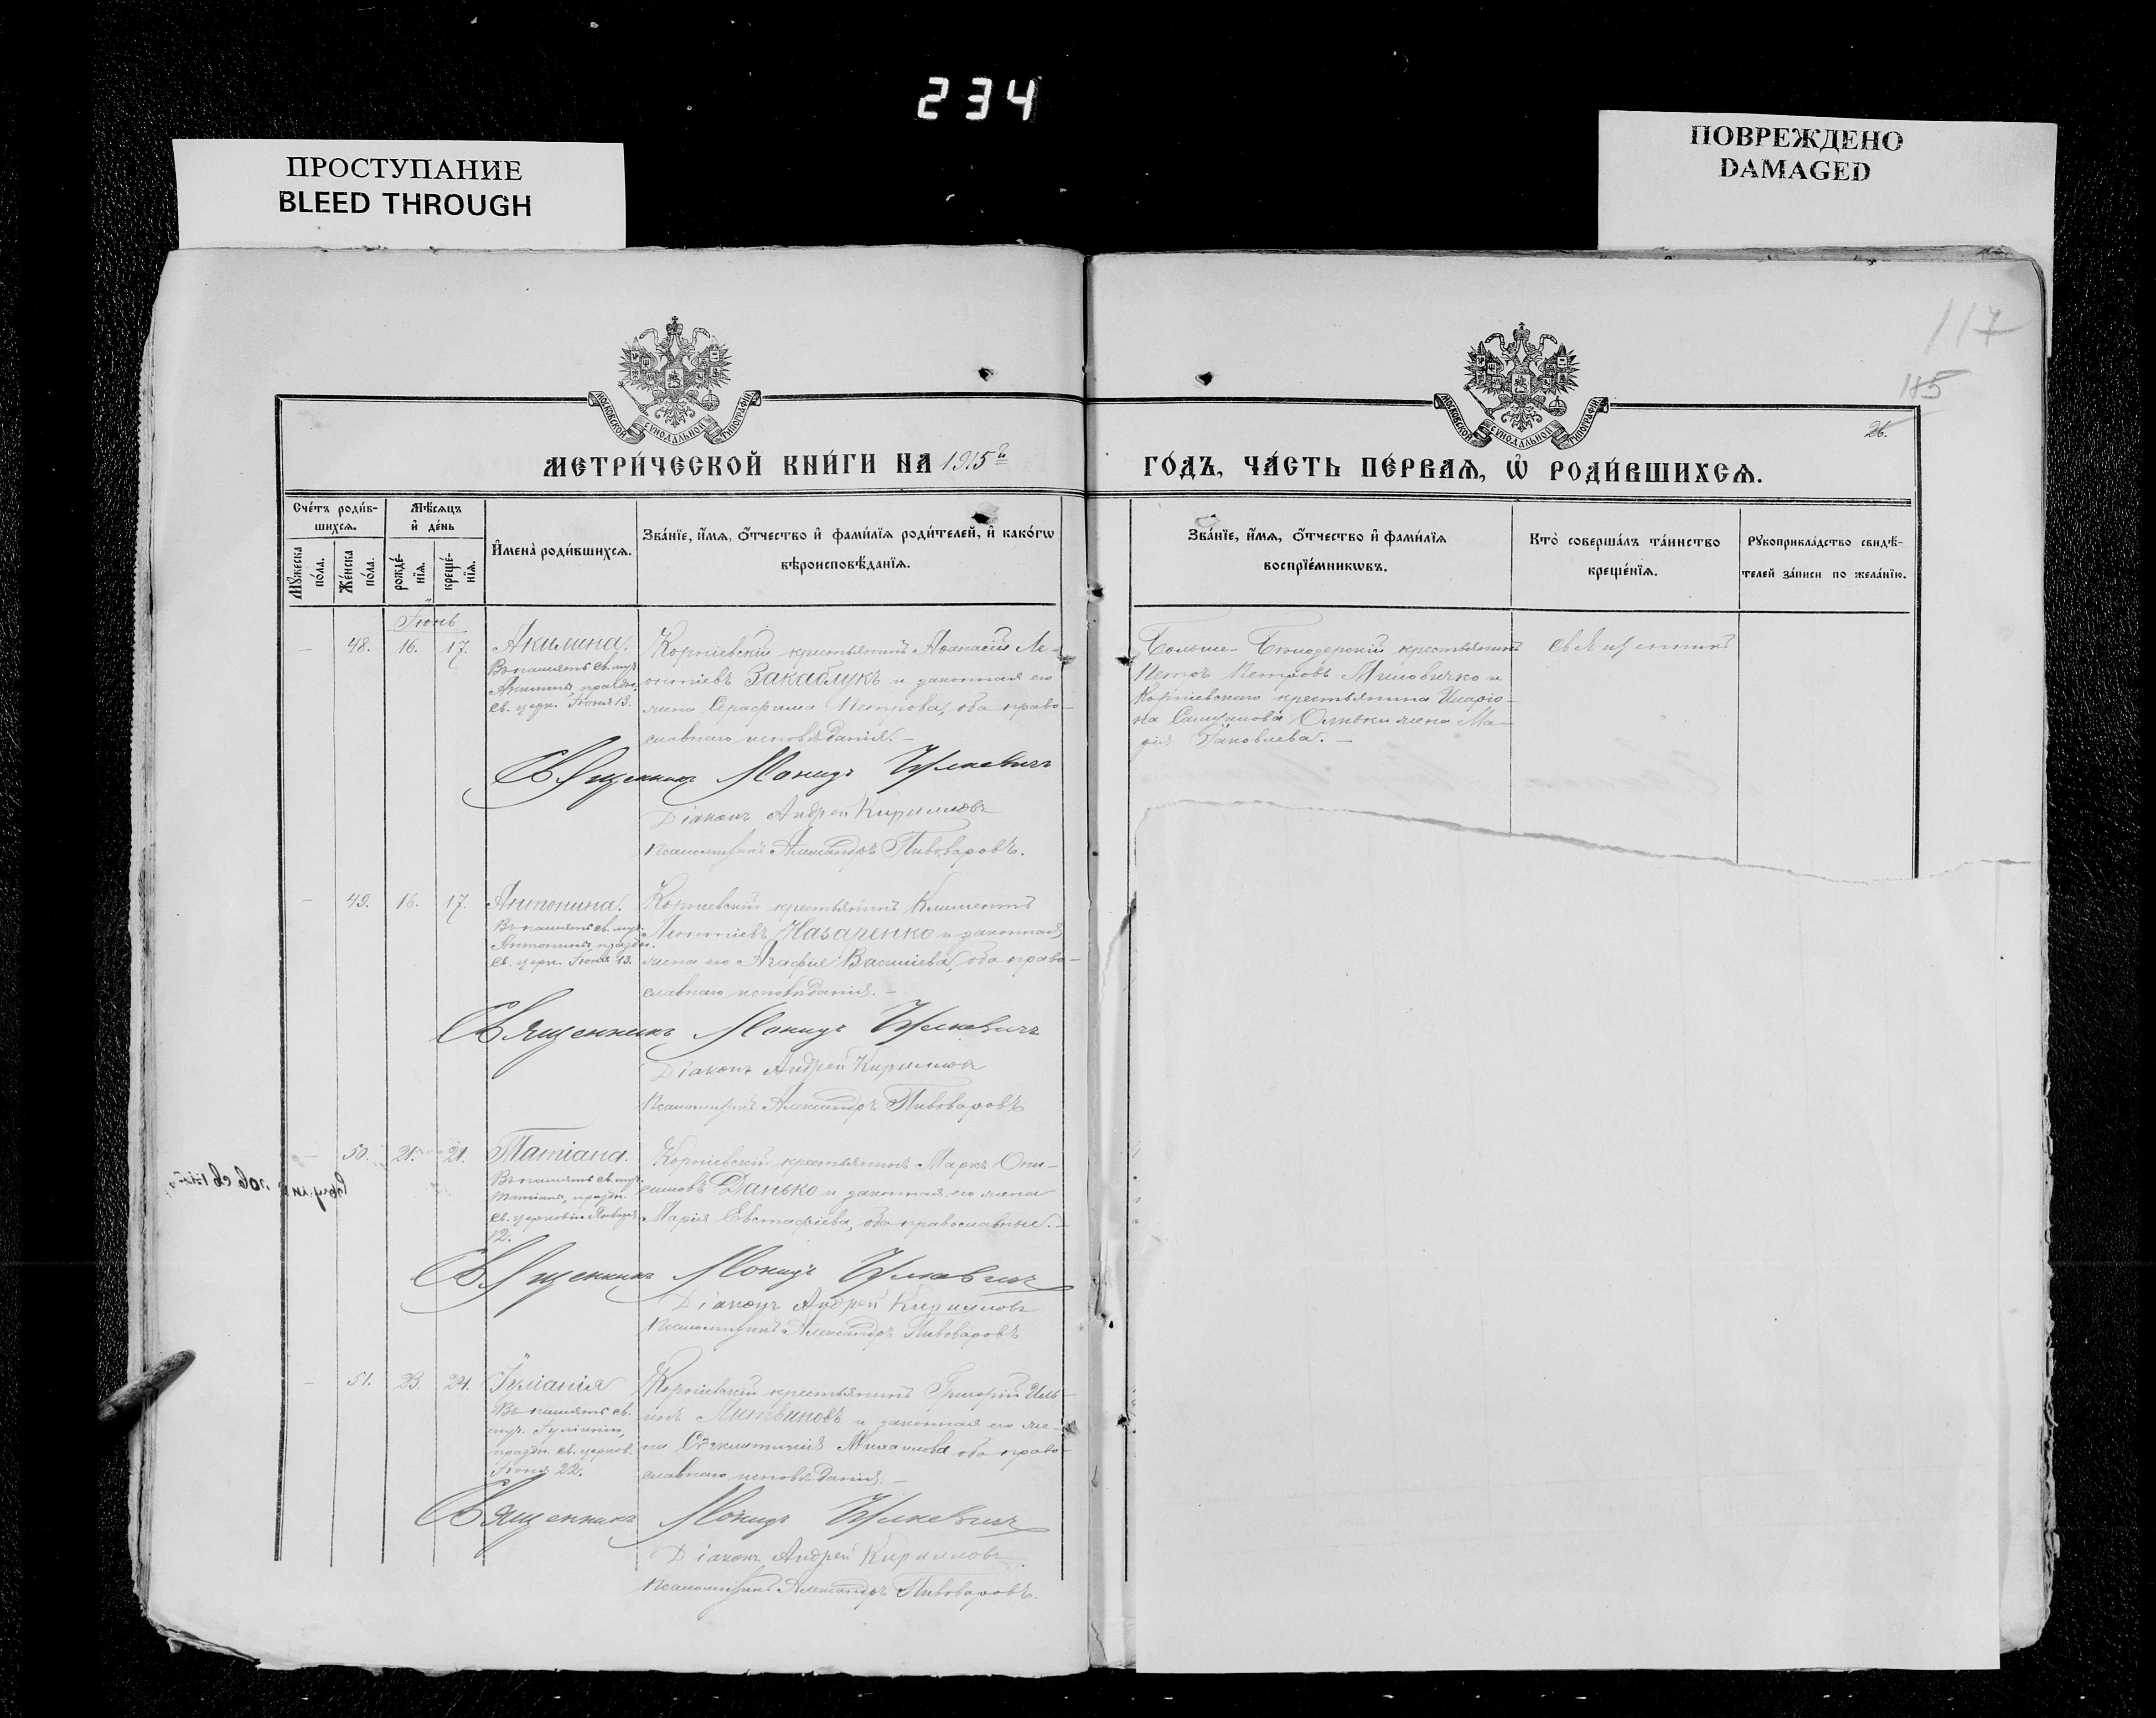 234
ПРОСТУПАНИЕ
BLEED THROUGH
ПОВРЕЖДЕНО
DAMAGED
117
115
26.
МОСКОВСКОЙ СѴНОДАЛЬНОЙ ТИПОГРАФІИ
МОСКОВСКОЙ СѴНОДАЛЬНОЙ ТИПОГРАФІИ
МЕТРИ́ЧЕСКОЙ КНИ́ГИ НА 1915й
ГО́ДЪ, ЧА́СТЬ ПЕ́РВАѦ, Ѡ҆ РОДИ́ВШИХСѦ.
Сче́тъ роди́в-
шихсѧ.
Мꙋ́жеска
по́ла.
Же́нска
по́ла.
Мѣ́сѧцъ
и҆ де́нь
рожде́-
нїѧ.
креще́-
нїѧ.
И҆мена̀ роди́вшихсѧ.
Зва́нїе, и҆́мѧ, ѻ҆́тчество и҆ фами́лїѧ роди́телей, и҆ како́гѡ
вѣроисповѣ́данїѧ.
Зва́нїе, и҆́мѧ, ѻ҆́тчество и҆ фами́лїѧ
воспрїе́мникѡвъ.
Кто̀ соверша́лъ та́инство
креще́нїѧ.
Рꙋкоприкла́дство свидѣ́-
телей за́писи по жела́нїю.
Іюнь
— 48. 16. 17. Акилина.
Въ память св. муч.
Акилины, праздн.
св. церк. Іюня 13.
Корніевскій крестьянинъ Аѳанасій Ле-
онтіевъ Закаблукъ и законная его
жена Серафима Петрова, оба право-
славнаго исповѣданія. —
Больше-Бюндерскій крестьянинъ
Петръ Петровъ и
Корніевскаго крестьянина Иларіо-
на жена Ма-
рія Яковлева. —
Священникъ
Священникъ
Діаконъ Андрей Кирилловъ
Псаломщикъ Александръ Пивоваровъ.
— 49. 16. 17. Антонина.
Въ память св. муч.
Антонины, праздн.
св. церк. Іюня 13.
Корніевскій крестьянинъ Климентъ
Леонтіевъ Назаренко и законная
жена его Агафія Василіева, оба право-
славнаго исповѣданія. —
Священникъ
Діаконъ Андрей Кирилловъ
Псаломщикъ Александръ Пивоваровъ
— 50. 21. 21. Татіана.
Въ память св. муч.
Татіаны, праздн.
св. церковію Января
12.
Корніевскій крестьянинъ Маркъ Они-
симовъ Данько и законная его жена
Марія Евстафіева, оба православные. —
Священникъ
Діаконъ Андрей Кирилловъ
Псаломщикъ Александръ Пивоваровъ
— 51. 23. 24. Іуліанія
Въ память св.
муч. Іуліаніи,
праздн. св. церков.
Іюня 22.
Корніевскій крестьянинъ Григорій Иль-
инъ Литвиновъ и законная его же-
на Михаилова оба право-
славнаго исповѣданія. —
Священникъ
Діаконъ Андрей Кирилловъ
Псаломщикъ Александръ Пивоваровъ.